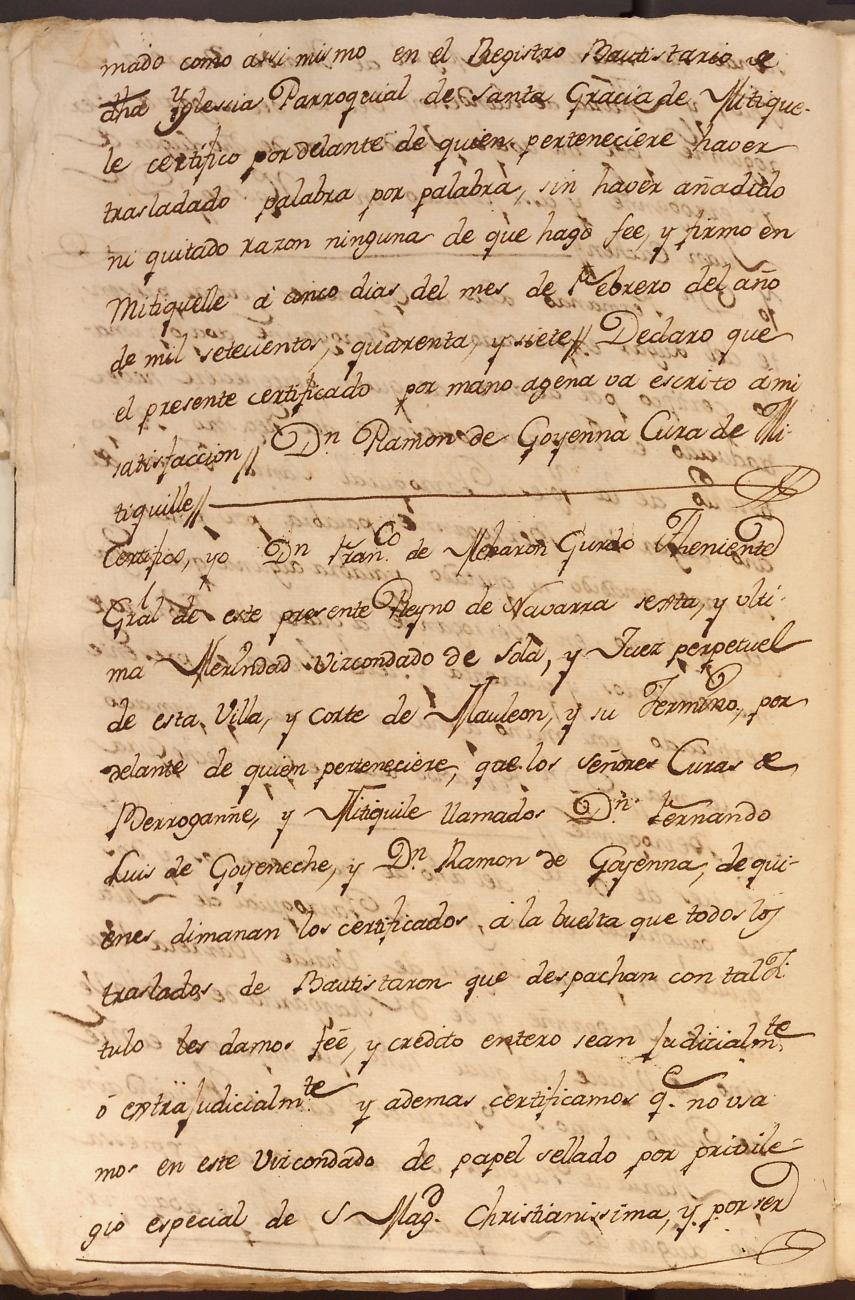 mado como assi mismo en el Registro Bautistario de
dha Yglessia Parroquial de Santa Gracia de Mitique-
le certifico por delante de quien perteneciere haver
trasladado palabra por palabra, sin haver añadido
ni quitado razon ninguna de que hago fee, y firmo en
Mitiquelle a cinco dias del mes de Febrero del año
de mil setecientos, quarenta, y siete// Declaro que
el presente certificado por mano agena va escrito a mi
satisfaccion// Dn Ramon de Goyenna Cura de Mi-
tiquille//
Certifico, yo Dn Franco. de Meharon Gurdo Theniente
Gral de este presente Reyno de Navarra sexta, y ulti-
ma Merindad Vizcondado de Sola, y Juez perpetuel
de esta Villa, y Corte de Mauleon, y su Termino, por
delante de quien perteneciere, que los señores Curas de
Berroganñe, y Mitiquile llamados Dn. Fernando
Luis de Goyeneche, y Dn. Ramon de Goyenna, de qui-
enes dimanan los certificados a la buelta que todos los
traslados de Bautistaron que despachan con tal Ti-
tulo les damos feé, y credito entero sean Judicialmte.
ó extraJudicialmte. y ademas certificamos qe. no usa
mos en este Vizcondado de papel sellado por privile-
gio especial de S Magd. Christianissima, y por ser